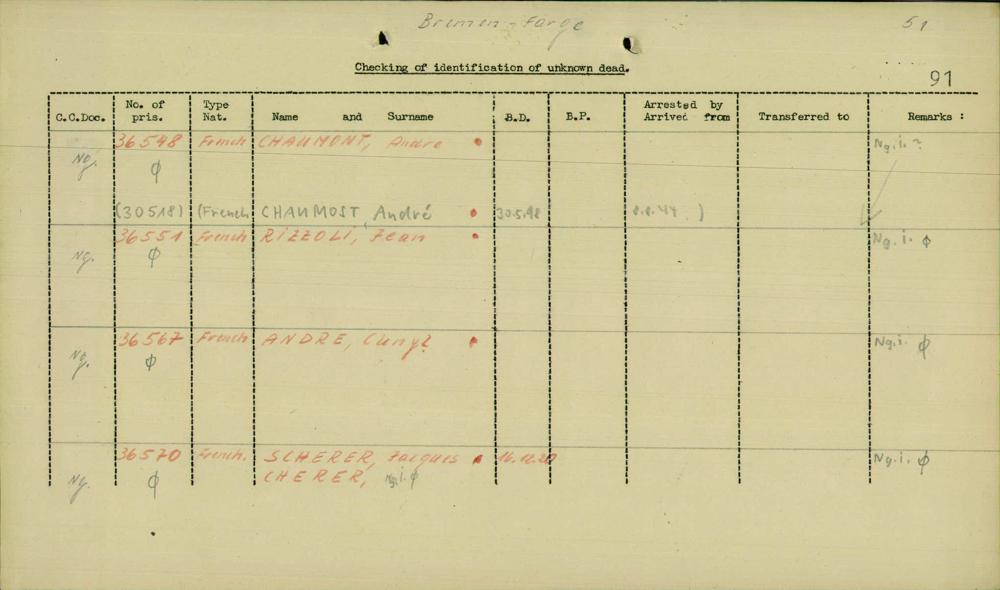 Bremen-Farge 51
Checking of identification of unknown dead.
91
C.C.Doc. No. of pris. Type Nat. Name and Surname B.D. B.P. Arrested by Arrived from Transferred to Remarks :
36548 French CHAUMONT, Andre Ng.i. ?
Ng. ϕ
(30518) (French CHAUMOST, André 30.5.98 8.8.44 )
36551 French RIZZOLI, Jean Ng.i. ϕ
Ng. ϕ
36567 French ANDRE, Ng.i. ϕ
Ng. ϕ
36570 French. SCHERER, Jacques 16.12.20 Ng.i. ϕ
Ng. ϕ CHERER, Ng.i. ϕ